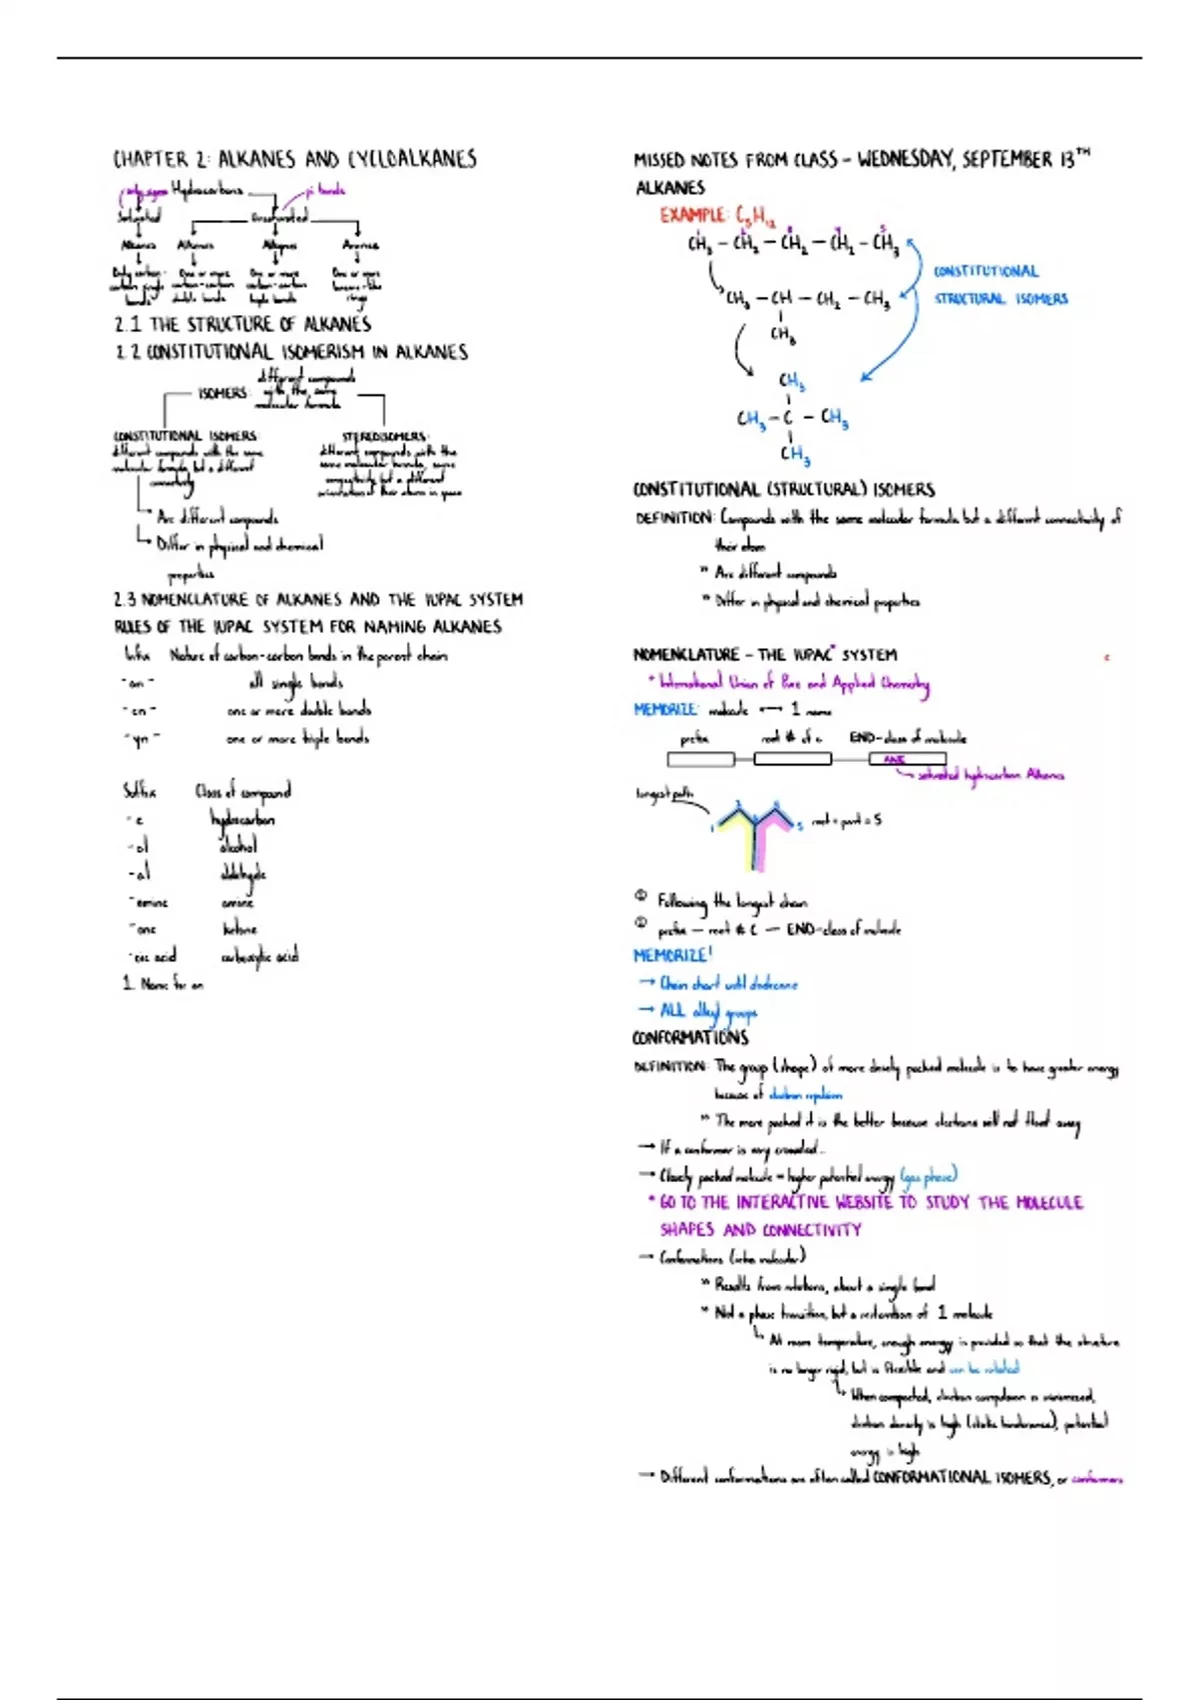 CHAPTER 2: ALKANES AND CYCLOALKANES
only sigma Hydrocarbons pi bonds
Saturated Unsaturated
Alkanes Alkenes Alkynes Arenes
Only carbon- One or more One or more One or more
carbon single carbon-carbon carbon-carbon benzene-like
bonds double bonds triple bonds rings
2.1 THE STRUCTURE OF ALKANES
2.2 CONSTITUTIONAL ISOMERISM IN ALKANES
different compounds
ISOMERS: with the same
molecular formula
CONSTITUTIONAL ISOMERS: STEREOISOMERS:
different compounds with the same different compounds with the
molecular formula but a different same molecular formula, same
connectivity connectivity but a different
orientation of their atoms in space
Are different compounds
Differ in physical and chemical
properties
2.3 NOMENCLATURE OF ALKANES AND THE IUPAC SYSTEM
RULES OF THE IUPAC SYSTEM FOR NAMING ALKANES
Infix Nature of carbon-carbon bonds in the parent chain
-an- all single bonds
-en- one or more double bonds
-yn- one or more triple bonds
Suffix Class of compound
-e hydrocarbon
-ol alcohol
-al aldehyde
-amine amine
-one ketone
-oic acid carboxylic acid
1. Name for an
MISSED NOTES FROM CLASS - WEDNESDAY, SEPTEMBER 13TH
ALKANES
EXAMPLE: C5H12
CH3 - CH2 - CH2 - CH2 - CH3
CONSTITUTIONAL
CH3 - CH - CH2 - CH3
STRUCTURAL ISOMERS
CH3
CH3
CH3 - C - CH3
CH3
CONSTITUTIONAL (STRUCTURAL) ISOMERS
DEFINITION: Compounds with the same molecular formula but a different connectivity of
their atom
" Are different compounds
" Differ in physical and chemical properties
NOMENCLATURE - THE IUPAC* SYSTEM
* International Union of Pure and Applied Chemistry
MEMORIZE: molecule ⟷ 1 name
prefix root # of c END-class of molecule
ANE
saturated hydrocarbon Alkanes
longest path
1 2 4 5 root = pent = 5
① Following the longest chain
② prefix - root # C - END-class of molecule
MEMORIZE!
→ Chain chart until dodecane
→ ALL alkyl groups
CONFORMATIONS
DEFINITION: The group (shape) of more closely packed molecule is to have greater energy
because of electron repulsion
" The more packed it is the better because electrons will not float away
→ If a conformer is very crowded..
→ Closely packed molecule = higher potential energy (gas phase)
* GO TO THE INTERACTIVE WEBSITE TO STUDY THE MOLECULE
SHAPES AND CONNECTIVITY
→ Conformations
" Results from rotations, about a single bond
" Not a phase transition, but a of 1 molecule
At room temperature, enough energy is provided so that the structure
is no longer rigid, but is flexible and can be rotated
When compacted, electron is
electron density is high, potential
energy is high
→ Different conformations are often called CONFORMATIONAL ISOMERS, or conformers